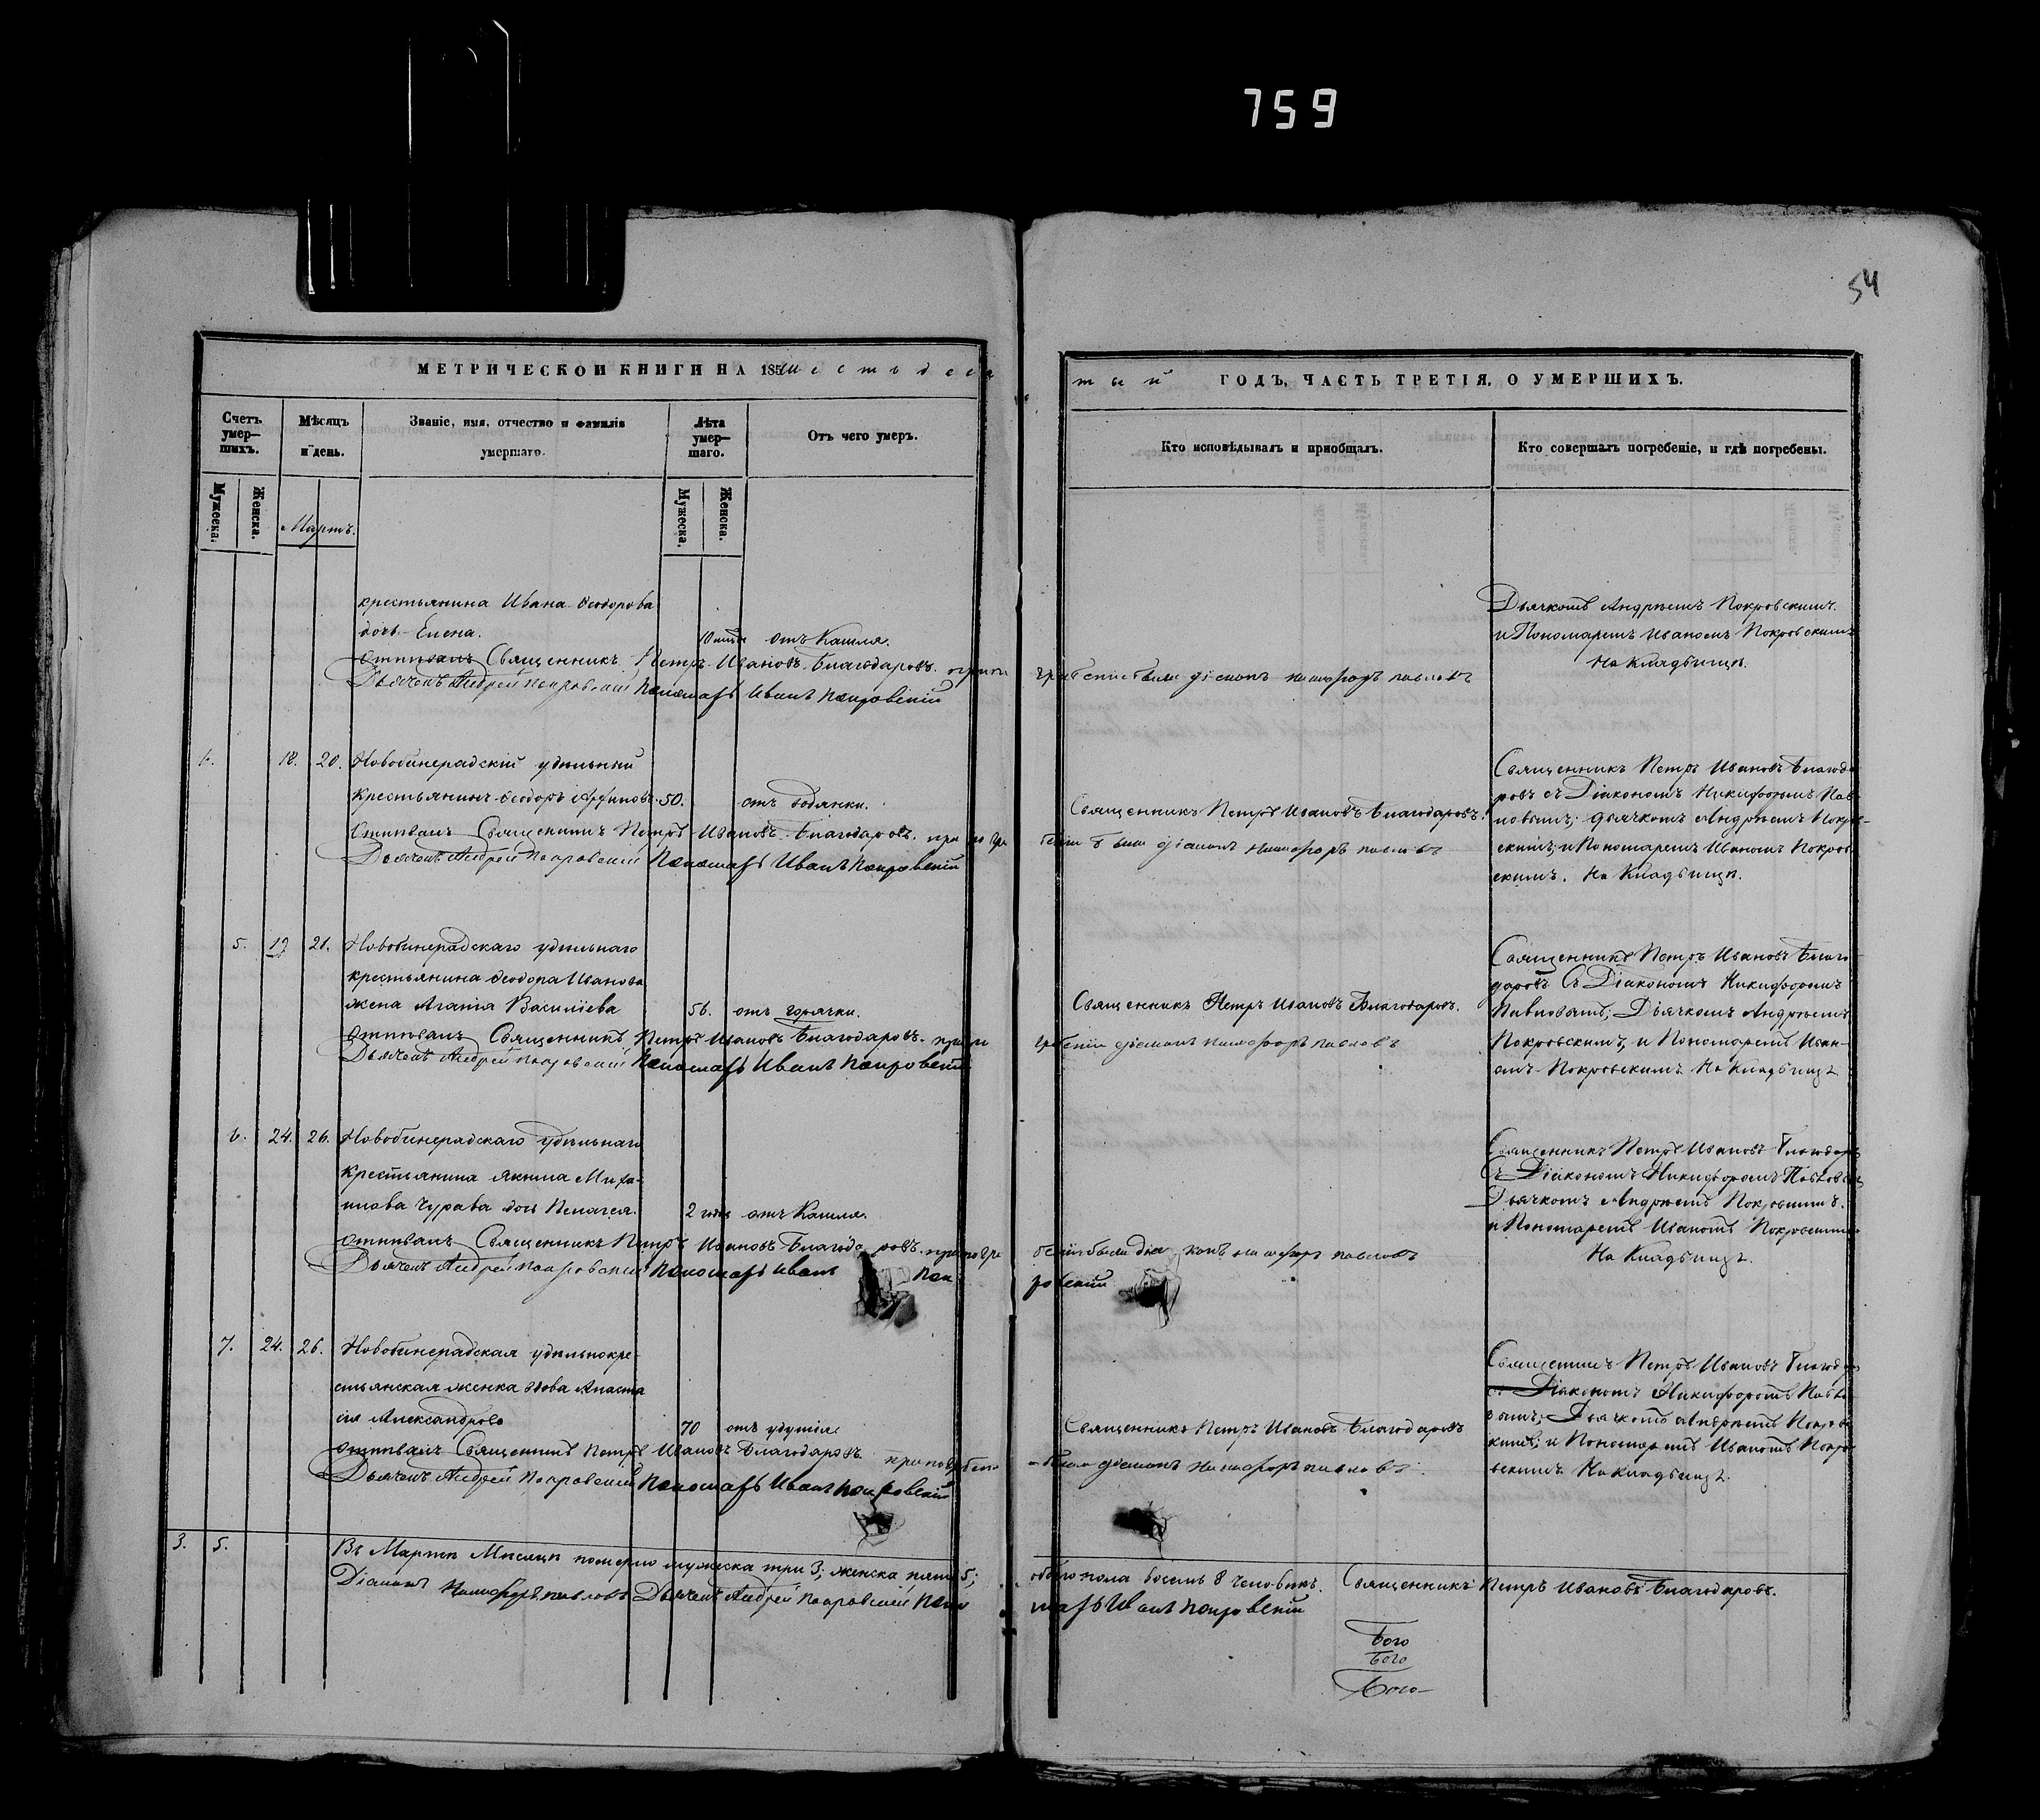 759
54
МЕТРИЧЕСКОЙ КНИГИ НА 185 шестьдеся
тый ГОДЪ, ЧАСТЬ ТРЕТІЯ, О УМЕРШИХЪ.
Счетъ умер—шихъ.
Мѣсяцъ и день.
Званіе, имя, отчество и фамилія умершаго.
Лѣта умер—шаго.
Отъ чего умеръ.
Кто исповѣдывалъ и пріобщалъ.
Кто совершалъ погребеніе, и гдѣ погребены.
Мужеска.
Женска.
Мартъ.
Мужеска.
Женска.
крестьянина Ивана Ѳеодорова
дочь Елена. отъ Кашля.
отпѣвалъ Священникъ Петръ Ивановъ Благодаровъ
Дьячекъ Андрей Покровскій Пономарь Иванъ Покровскій
были діаконъ Никифоръ Павловъ
Дьячкомъ Андреемъ Покровскимъ
и Пономаремъ Иваномъ Покровскимъ
На Кладбищѣ.
18. 20. Новобинерадскій удѣльный
крестьянинъ Ѳеодоръ 50. отъ водянки.
Отпѣвалъ Священникъ Петръ Ивановъ Благодаровъ при погре
Дьячекъ Андрей Покровскій Пономарь Иванъ Покровскій
Священникъ Петръ Ивановъ Благодаровъ.
беніи были діаконъ Никифоръ Павловъ
Священникъ Петръ Ивановъ Благода
ровъ съ Діакономъ Никифоромъ Пав
ловымъ, дьячкомъ Андреемъ Покров
скимъ, и Пономаремъ Иваномъ Покров
скимъ. На Кладбищѣ.
5. 19 21. Новобинерадскаго удѣльнаго
крестьянина Ѳеодора Иванова
жена Агапія Васильева 56. отъ горячки.
отпѣвалъ Священникъ Петръ Ивановъ Благодаровъ
Дьячекъ Андрей Покровскій Пономарь Иванъ Покровскій
Священникъ Петръ Ивановъ Благодаровъ.
гребеніи діаконъ Никифоръ Павловъ
Священникъ Петръ Ивановъ Благо
даровъ Съ Діакономъ Никифоромъ
Павловымъ, Дьячкомъ Андреемъ
Покровскимъ, и Пономаремъ Иван
омъ Покровскимъ На Кладбищѣ
6. 24. 26. Новобинерадскаго удѣльнаго
крестьянина Якима Миха-
илова Чурава дочь Пелагея. 2 отъ Кашля.
отпѣвалъ Священникъ Петръ Ивановъ Благодаровъ при погре
Дьячекъ Андрей Покровскій Пономарь Иванъ Пок
беніи были діаконъ Никифоръ Павловъ
ровскій
Священникъ Петръ Ивановъ Благодаровъ
съ Діакономъ Никифоромъ Павловымъ
Дьячкомъ Андреемъ Покровскимъ
и Пономаремъ Иваномъ Покровскимъ
На Кладбищѣ.
7. 24. 26. Новобинерадская удѣльнокре-
стьянская женка вдова Анаста
сія Александрова 70 отъ удушія
отпѣвалъ Священникъ Петръ Ивановъ Благодаровъ при погребені
Дьячекъ Андрей Покровскій Пономарь Иванъ Покровскій
Священникъ Петръ Ивановъ Благодаровъ
и были діаконъ Никифоръ Павловъ
Священникъ Петръ Ивановъ Благодар
съ Діакономъ Никифоромъ Павло
вымъ, Дьячкомъ Андреемъ Покров
скимъ, и Пономаремъ Иваномъ Покро
вскимъ На Кладбищѣ.
3. 5. Въ Мартѣ Мѣсяцѣ померло мужеска три 3; женска пять 5;
обоего пола восемь 8 человѣкъ. Священникъ Петръ Ивановъ Благодаровъ.
Діаконъ Никифоръ Павловъ Дьячекъ Андрей Покровскій Поно
марь Иванъ Покровскій